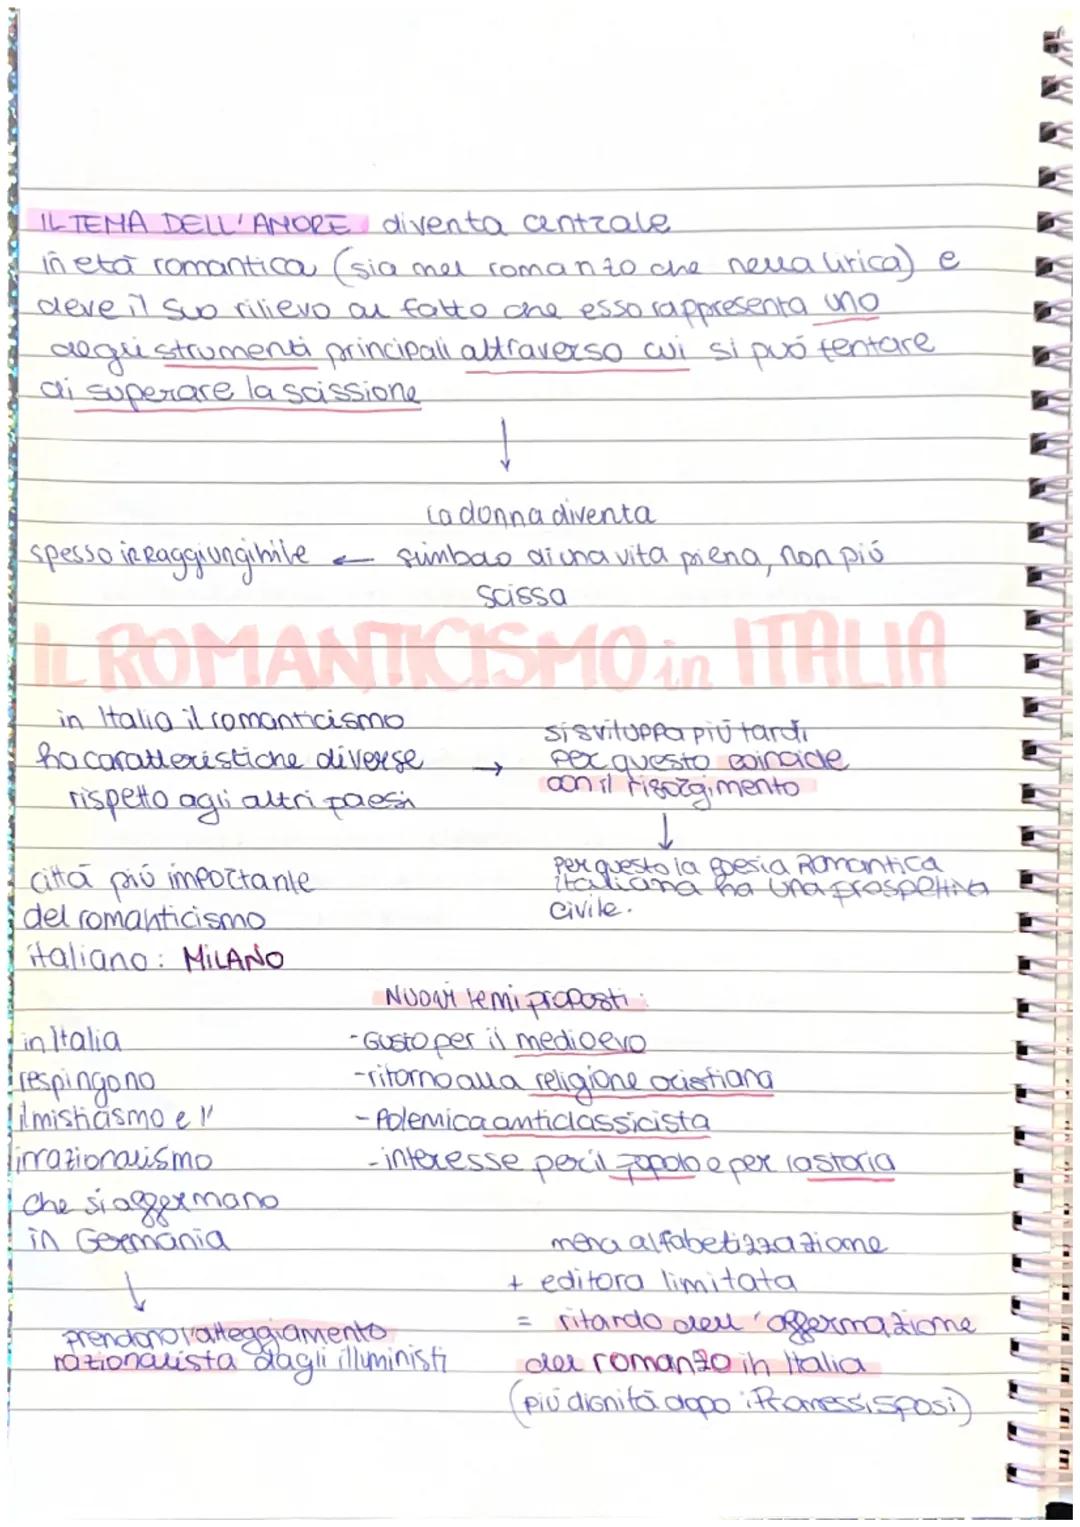 IL TEMA DELL'AMORE diventa centrale
in età romantica (sia nel romanzo che nella lirica) e
deve il suo rilievo al fatto che esso rappresenta uno
degli strumenti principali attraverso cui si può tentare
di superare la scissione
↓
La donna diventa
spesso irraggiungibile ← simbolo di una vita piena, non più
scissa
IL ROMANTICISMO in ITALIA
in Italia il romanticismo
ha caratteristiche diverse →
rispetto agli altri paesi
si sviluppa più tardi
per questo coincide
con il risorgimento
↓
per questo la poesia Romantica
italiana ha una prospettiva
civile.
città più importante
del romanticismo
italiano: MILANO
Nuovi temi proposti:
- Gusto per il medioevo
- ritorno alla religione cristiana
- Polemica anticlassicista
- interesse per il popolo e per la storia
in Italia
respingono
il misticismo e l'
irrazionalismo
che si affermano
in Germania
↓
prendono l'atteggiamento
razionalista dagli illuministi
meno alfabetizzazione
+ editora limitata
= ritardo dell'affermazione
del romanzo in Italia
(più dignità dopo i Promessi Sposi)